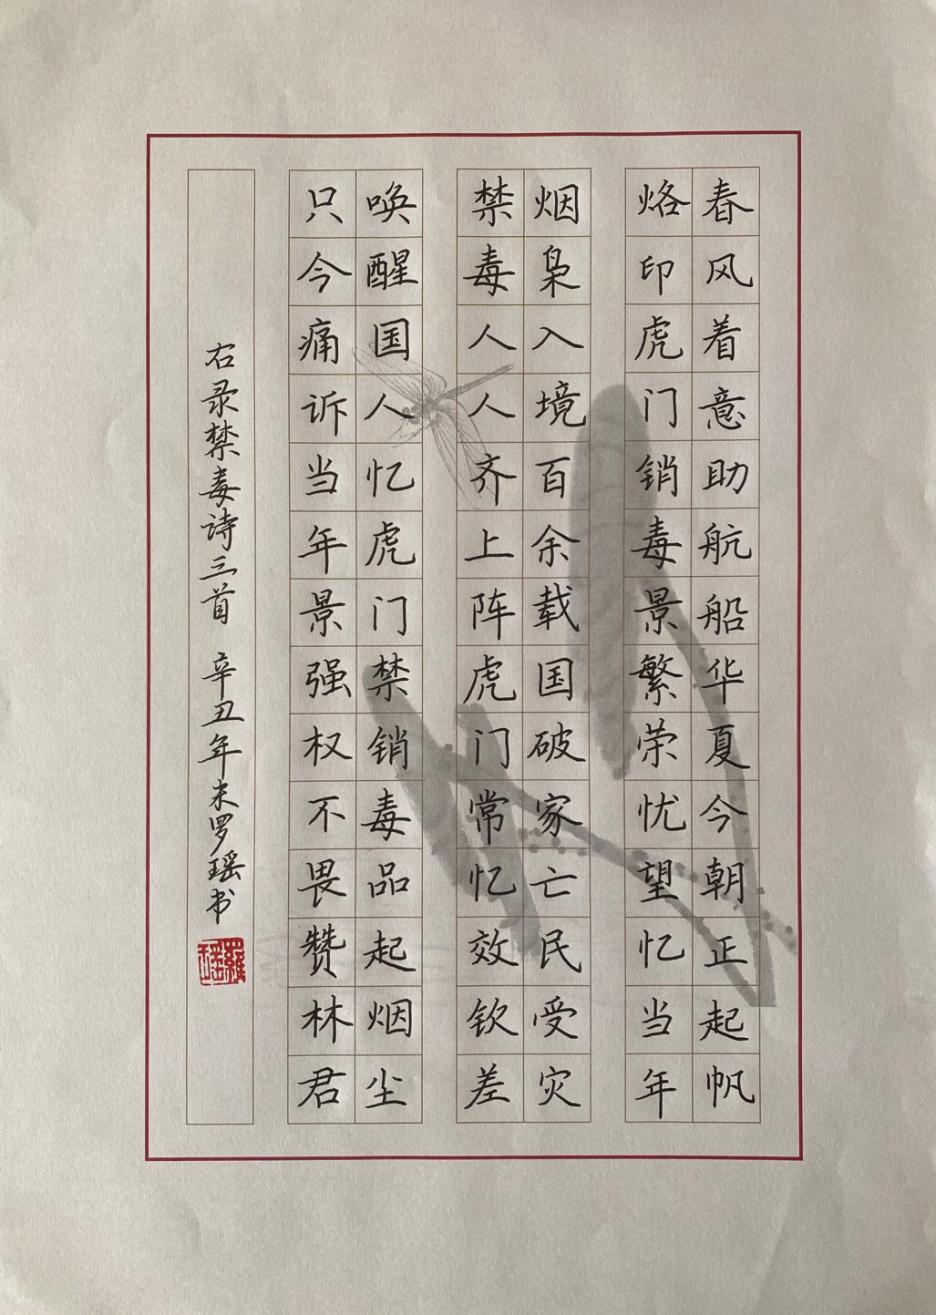 春风着意助航船华夏今朝正起帆
烙印虎门销毒景繁荣忧望忆当年
烟枭入境百余载国破家亡民受灾
禁毒人人齐上阵虎门常忆效钦差
唤醒国人忆虎门禁销毒品起烟尘
只今痛诉当年景强权不畏赞林君
右录禁毒诗三首 辛丑年末罗瑶书
羅瑶